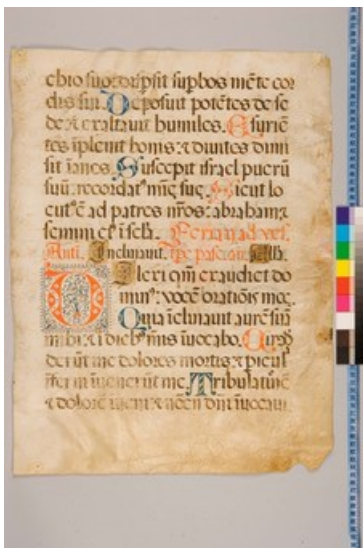 chio suo: dispsit supbos mēte cor
dis sui. Deposuit potētes de se
de: ⁊ exaltauit humiles. Esuriē
tes īpleuit bonis: ⁊ diuites dimi
sit īanes. Suscepit israel puerū
suū: recordatꝰ mīe sue. Sicut lo
cutꝰ ē ad patres nr̄os: abraham ⁊
semini eiꝰ ī scła. Feria ad ves.
Anti. Inclinauit. tp̄e pascali. Alla.
Dilexi qm̄ exaudiet do
minꝰ: vocē oratiōis mee.
Quia īclinauit aurē suā
mihi: ⁊ ī diebꝰ meis īuocabo. Circū
derūt me dolores mortis: ⁊ picul
īferni īuenerūt me. Tribulatiōē
⁊ dolorē īueni: ⁊ nomē dn̄i īuocaui